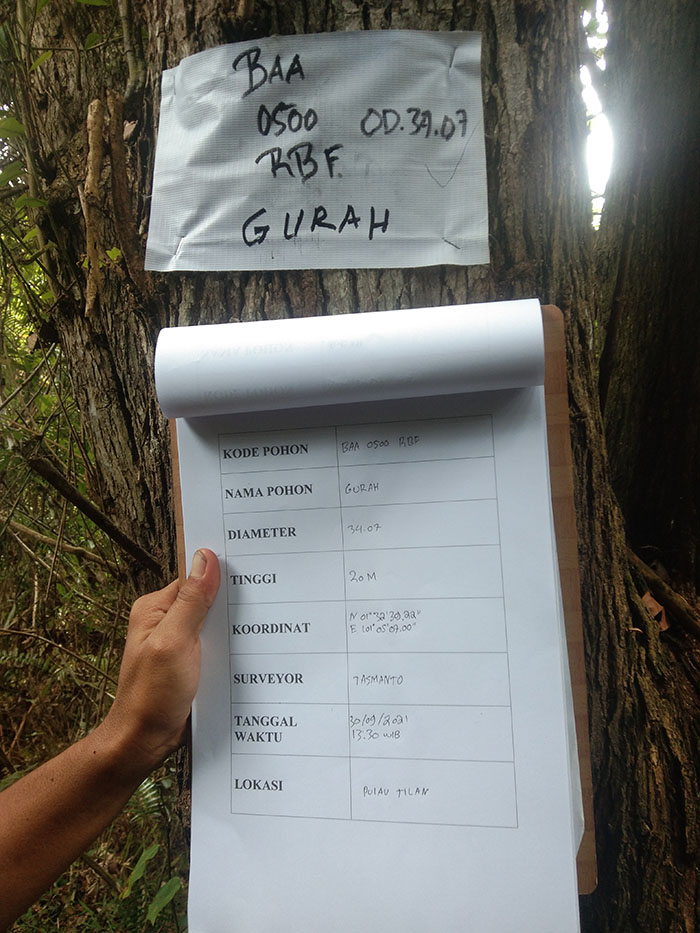 BAA
0500 OD.34.07
RBF
GURAH
KODE POHON BAA 0500 RBF
NAMA POHON GURAH
DIAMETER 34.07
TINGGI 20 M
KOORDINAT N 01°32'30,22"
E 101°05'07.00"
SURVEYOR TASMANTO
TANGGAL 30/09/2021
WAKTU 13.30 WIB
LOKASI PULAU TILAN